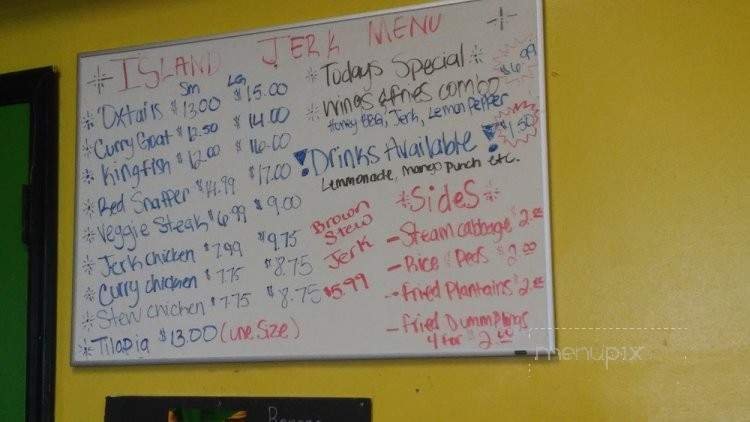 ISLAND JERK MENU
Sm LG
Oxtails $13.00 $15.00
Curry Goat $12.50 $14.00
Kingfish $12.00 $16.00
Red Snapper $14.99 $17.00
Veggie Steak $6.99 $9.00
Jerk chicken $7.99 $9.75
Curry chicken $7.75 $8.75
Stew chicken $7.75 $8.75
Tilapia $13.00 (one size)
Brown
Stew
Jerk
$5.99
Todays Special
wings & fries combo $6.99
Honey BBQ, Jerk, Lemon Pepper
! Drinks Available ! $1.50
Lemmonade, mango punch etc.
Sides
- Steam cabbage $2.00
- Rice & Peas $2.00
- Fried Plantains $2.00
- Fried Dummplings
4 for $2.00
menupix